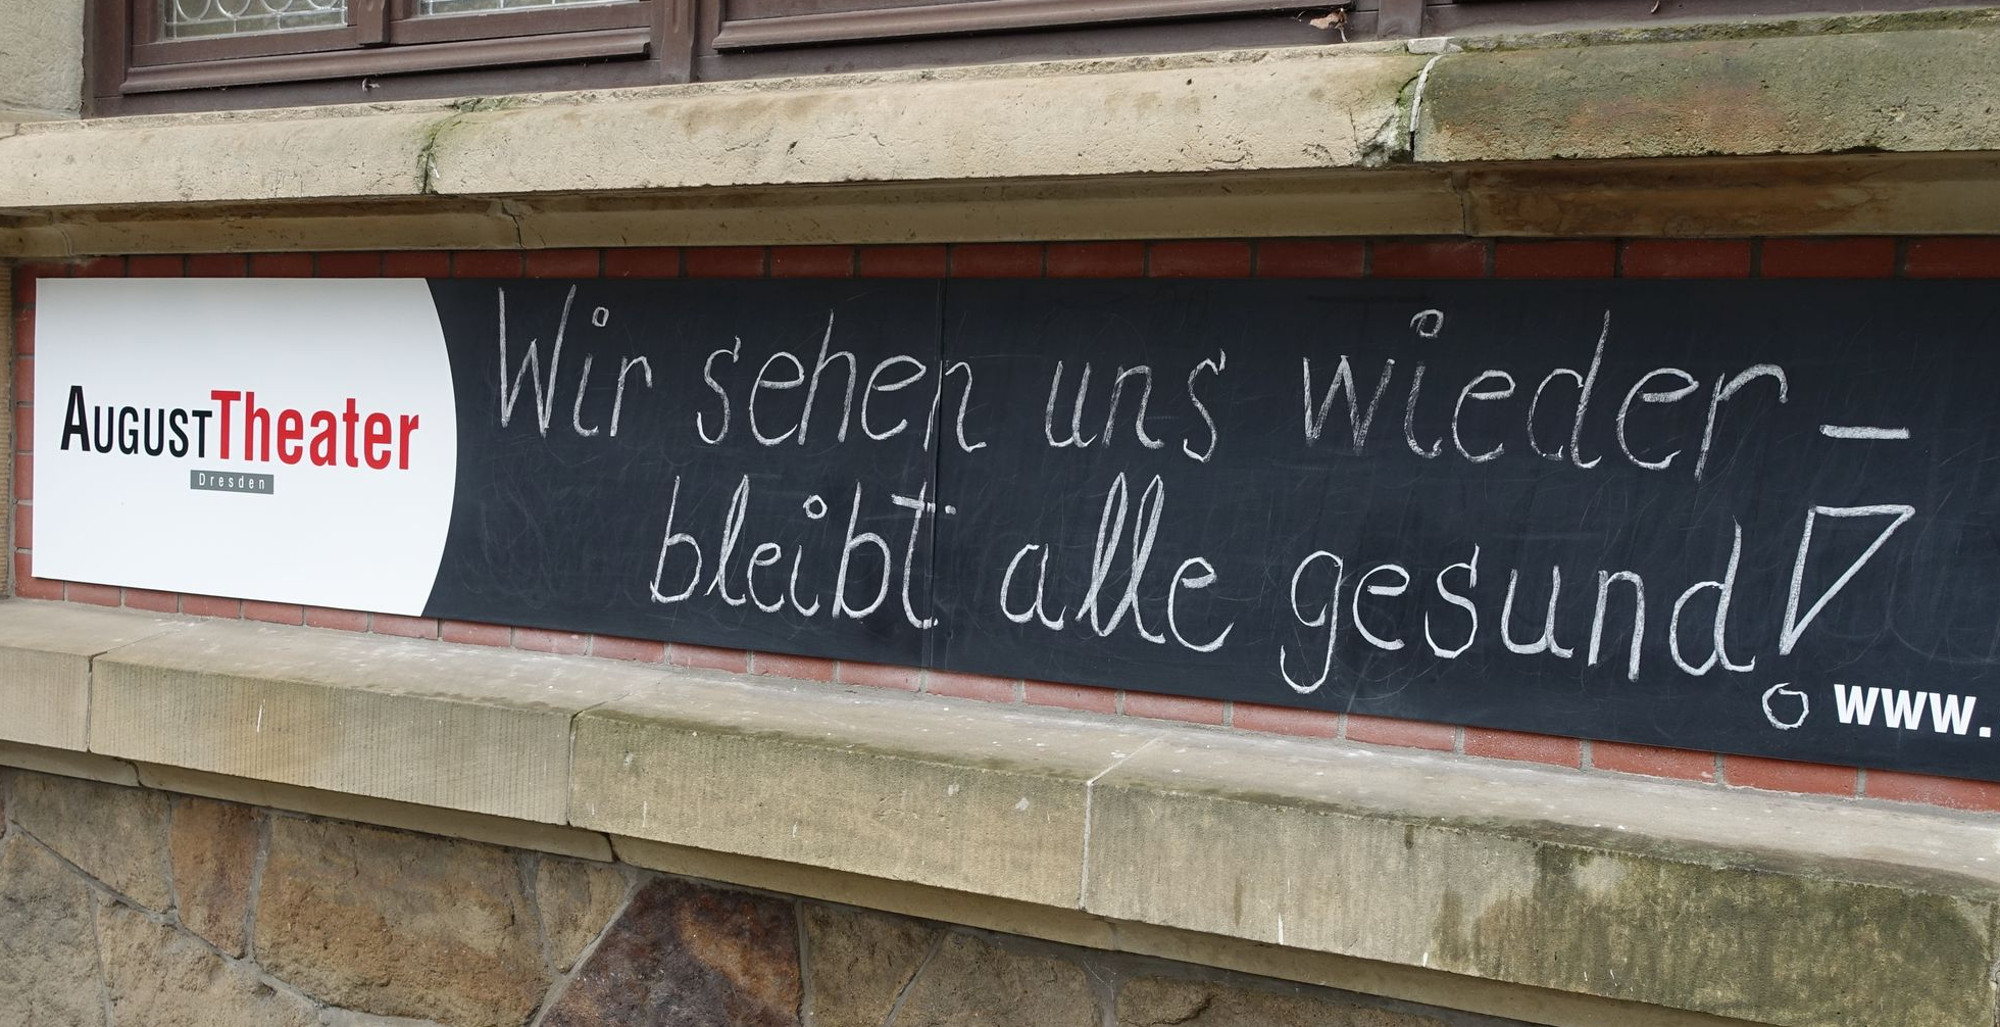 AUGUSTTheater
Dresden
Wir sehen uns wieder –
bleibt alle gesund!
www.